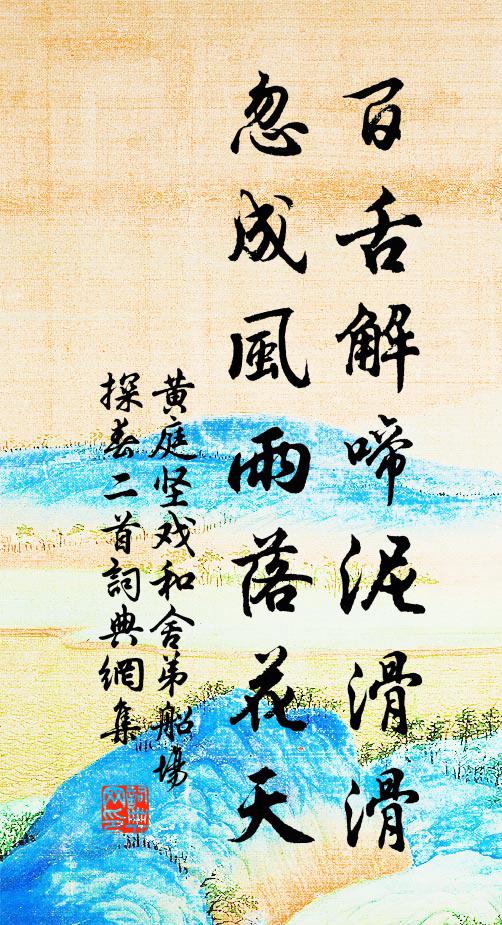 百舌解啼泥滑滑
忽成風雨落花天
黄庭坚戏和舍弟船場
探春二首詞典網集